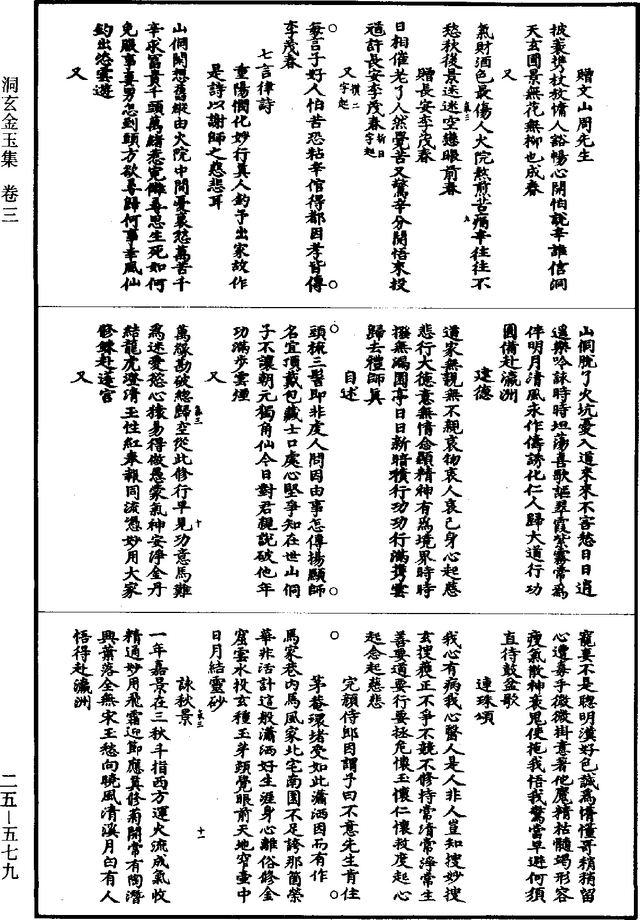 洞玄金玉集 卷三
二五—五七九
贈文山周先生
披裘攜杖放慵人豁暢心開怕說辛誰信洞
天玄圃景無花無柳也成春
又
氣財酒色最傷人火院熬煎苦辛往往不
愁秋後景迷迷空戀眼前春
贈長安李茂春
日相催老了人然覺苦又驚辛分開悟來投
逍許長安李茂春 折日字起
又 攢二字起
每言子好人怕苦恐帖辛倌得都因孝皆傳
李茂春
七言律詩
重陽憫化妙行真人釣予出家故作
是詩以謝師之慈悲耳
山侗閑想舊蹤由火院中間憂裏愁萬苦千
辛求富貴千頭萬緒惹寃讎尋思生死如何
免服事妻男怎到頭方欲尋歸何事幸風仙
釣出恣雲遊
又
山侗脫了火坑憂入道來來不害愁日日逍
遙斯吟詠時時坦蕩喜歌謳翠霞紫霧常為
伴明月清風永作儔誘化仁人歸大道行功
圓備赴瀛洲
建德
道家無親無不親哀物哀人哀己身心起慈
悲行大德意無情念顯精神有為境界時時
撥無漏園亭日日新暗積行功功行滿攜雲
歸去禮師真
自述
頭梳三髻即非虔人問因由事怎傳揚顯師
名宜頂戴包藏士口處心堅爭知在世山侗
子不讓朝元獨角仙今日對君親說破他年
功滿步雲煙
又
萬緣勘破總歸空從此修行早見功意馬難
為迷愛慾心猿易得做愚蒙氣神安淨金丹
結龍虎澄清玉性紅奉報同流憑妙用大家
修鍊赴蓬宮
又
寵妻不是聰明漢好色誠為懵懂哥稍稍留
心遭毒手微微掛意著他魔精枯髓竭形容
瘦氣散神衰鬼使拖我悟我驚當早避何須
直待鼓盆歌
連珠頌
我心有病我心醫人是人非人豈知搜妙搜
玄搜獲正不爭不競不修持常清常淨常生
善要道要行要拯危懷玉懷仁懷救度起心
起念起慈悲
完顏侍郎因謂予曰不意先生肯住
茅菴環堵受如此瀟洒因而有作
馬家巷內馬風家北宅南園不足誇那箇榮
華非活計這般瀟洒好生涯身心離俗修金
窟雲水投玄種玉芽頭覺眼前天地窄壺中
日月結靈砂
詠秋景
一年嘉景在三秋千指西方運火流成氣收
精通妙用飛霜迎節應真修菊開常有陶潛
興葉落全無宋玉愁向曉風清溪月白有人
悟得赴瀛洲